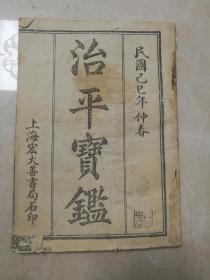 民國己巳年仲春
治平寶鑑
上海宏大善書局石印